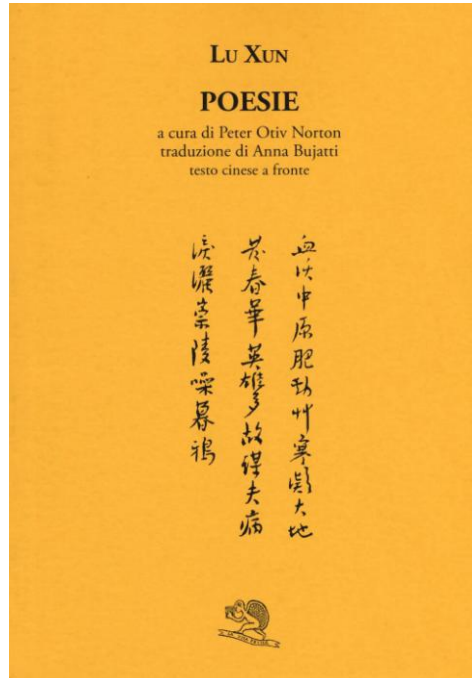 LU XUN
POESIE
a cura di Peter Otiv Norton
traduzione di Anna Bujatti
testo cinese a fronte
血沃中原肥勁艸寒凝大地
發春華英雄多故謀夫病
淚灑崇陵噪暮鴉